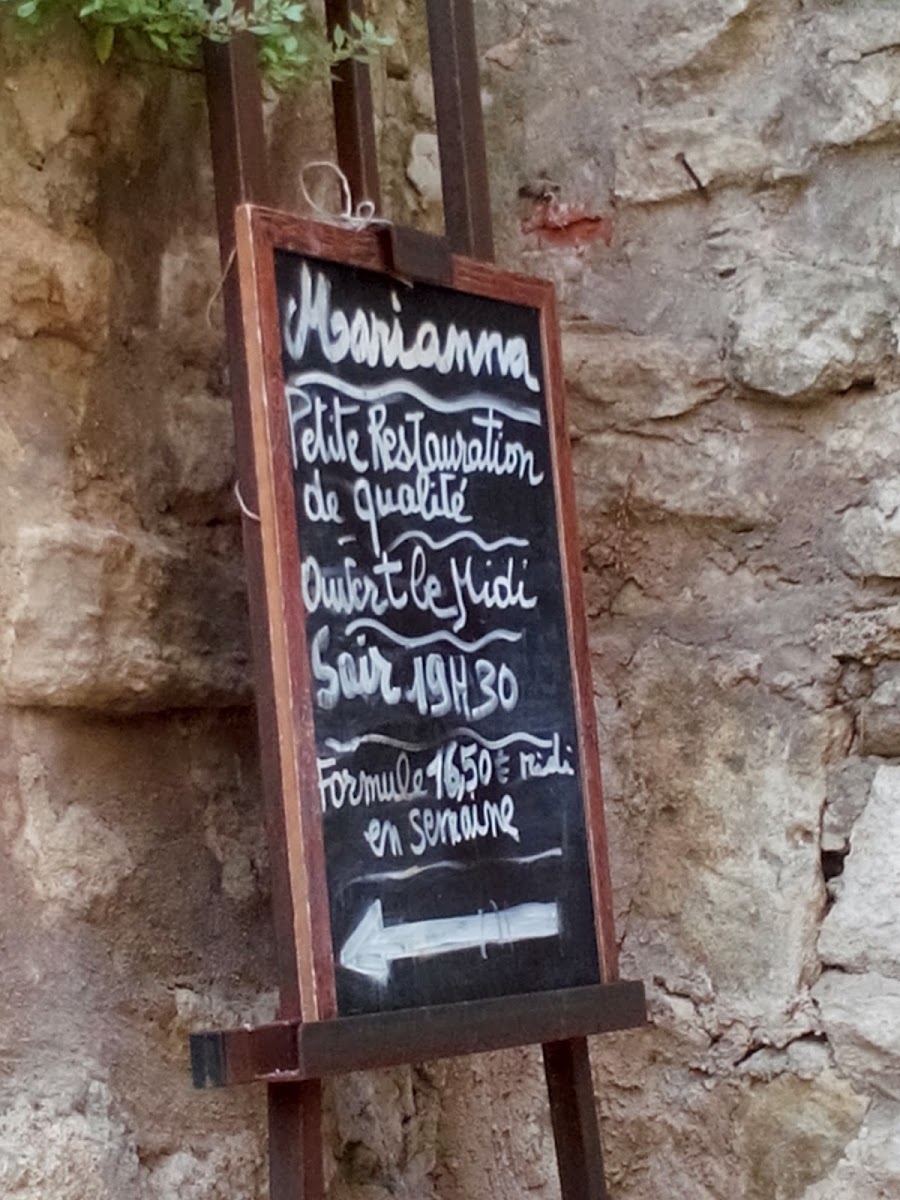 Marianna
Petite Restauration
de qualité
Ouvert le Midi
Soir 19H30
Formule 16,50 € midi
en semaine